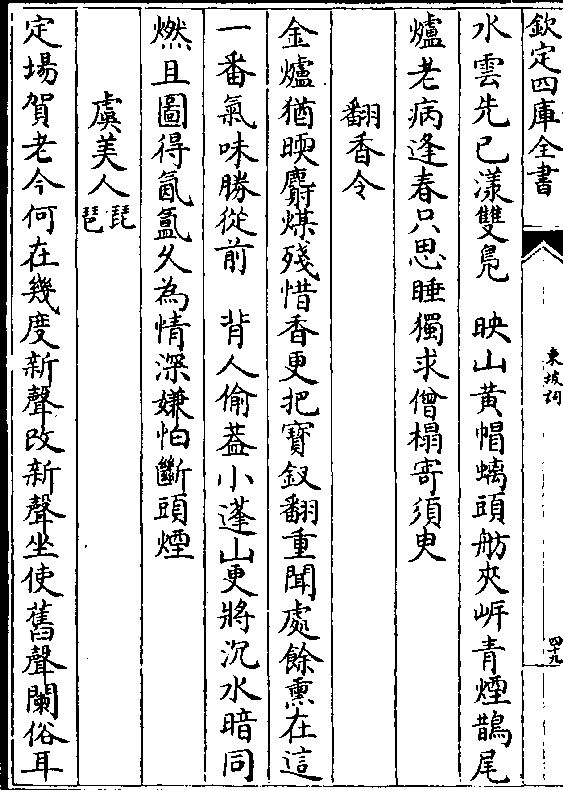 欽定四庫全書
東坡詞
四十九
水雲先已漾雙鳧　映山黃帽螭頭舫夾岍青煙鵲尾
爐老病逢春只思睡獨求僧榻寄須臾
翻香令
金爐猶暎麝煤殘惜香更把寶釵翻重聞處餘熏在這
一番氣味勝從前　背人偷葢小蓬山更將沉水暗同
燃且圖得氤氳久為情深嫌怕斷頭煙
虞美人琵琶
定場賀老今何在幾度新聲改新聲坐使舊聲闌俗耳